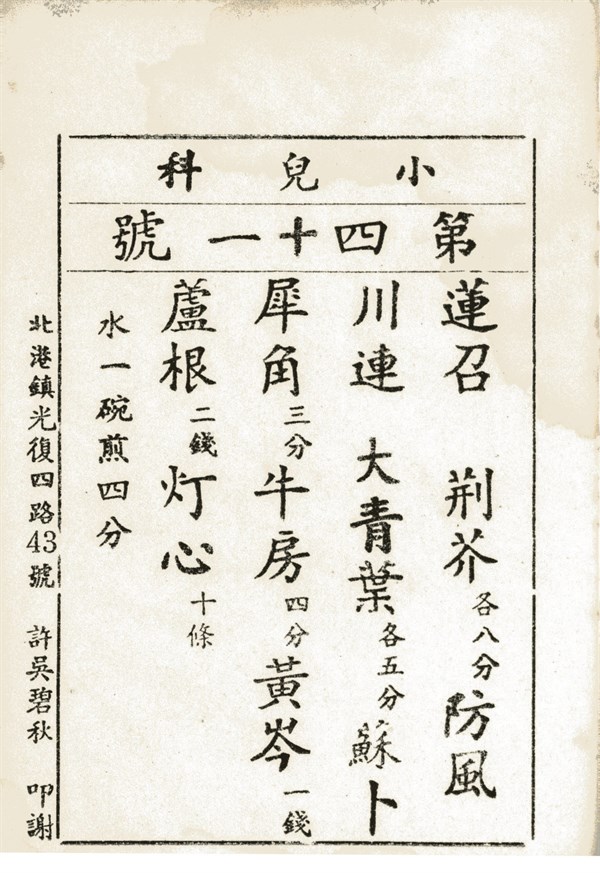 小兒科
第四十一號
蓮召 荆芥各八分防風
川連 大青葉各五分蘇卜
犀角三分牛房四分黃岑一錢
蘆根二錢灯心十條
水一碗煎四分
北港鎮光復四路43號 許吳碧秋 叩謝